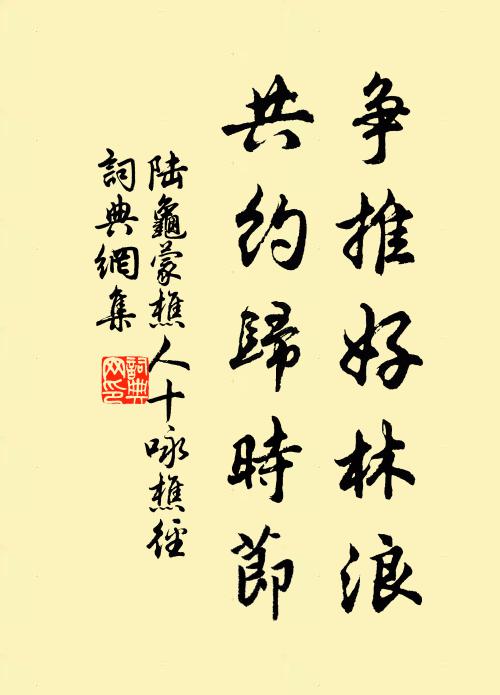 争推好林浪
共約歸時節
陸龜蒙樵人十咏樵徑
詞典網集
詞典網印